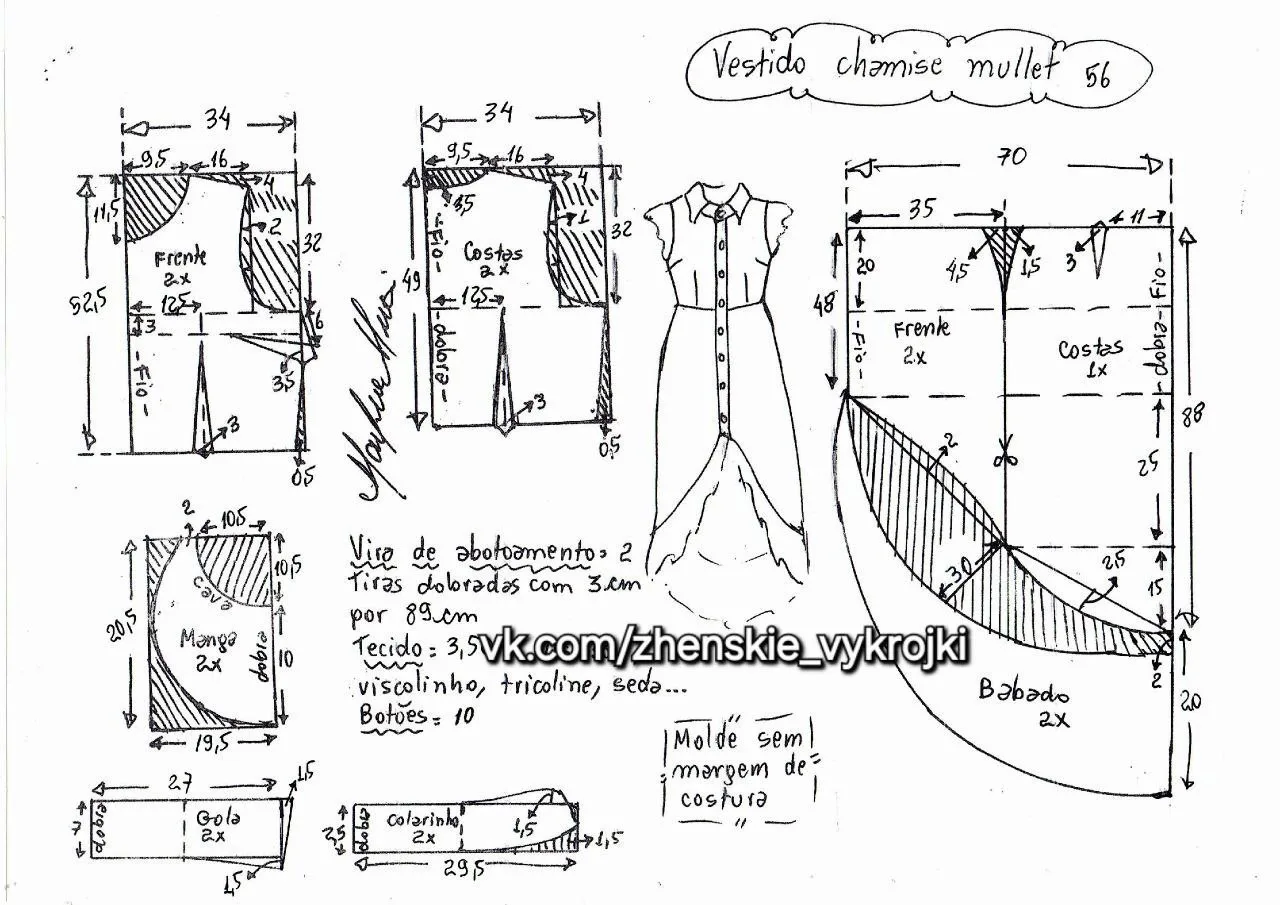 Vestido chamise mullet 56
34
9,5 16
4
11,5
2
32
Frente
2x
52,5
12,5
3
6
-Fio-
3,5
3
0,5
34
9,5 16
4
3,5
1
32
-Fio-
Costas
2x
49
12,5
-dobra-
3
0,5
70
35
11
20
4,5
1,5
3
48
-Fio-
Frente
2x
Costas
1x
-dobra-Fio-
88
2
25
30
2,5
15
2
Babado
2x
20
2
10,5
10,5
cava
20,5
Manga
2x
dobra
10
19,5
Vira de abotoamento = 2
Tiras dobradas com 3cm
por 89cm
Tecido = 3,5
vk.com/zhenskie_vykrojki
viscolinho, tricoline, seda...
Botões = 10
Molde sem
margem de
costura
27
1,5
7
dobra
Gola
2x
1,5
2,5
dobra
Colarinho
2x
1,5
1,5
29,5